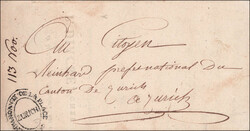 115 Nov.
Au Citoyen
Reinhard prefet national du
Canton de Zurich
a Zurich
DE LA PLACE
ZURICH